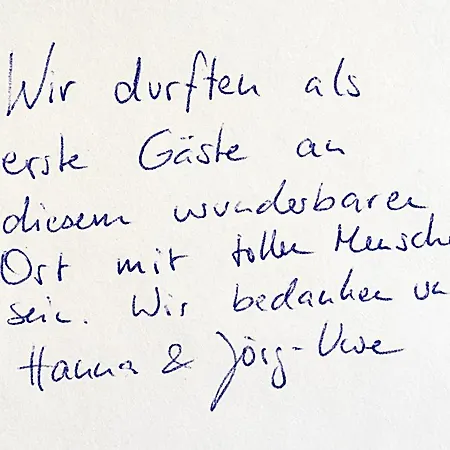 Wir durften als
erste Gäste an
diesem wunderbaren
Ort mit tollen Mensche
sein. Wir bedanken un
Hanna & Jörg-Uwe